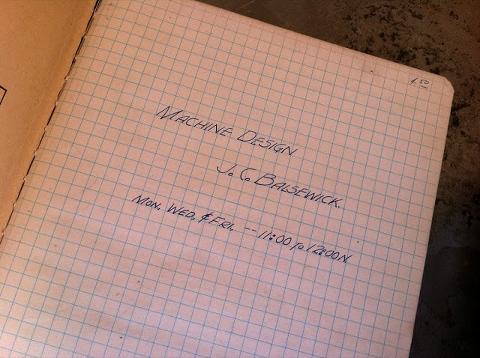 MACHINE DESIGN
J. C. BALSEWICK
MON. WED. & FRI. -- 11:00 TO 12:00 N.